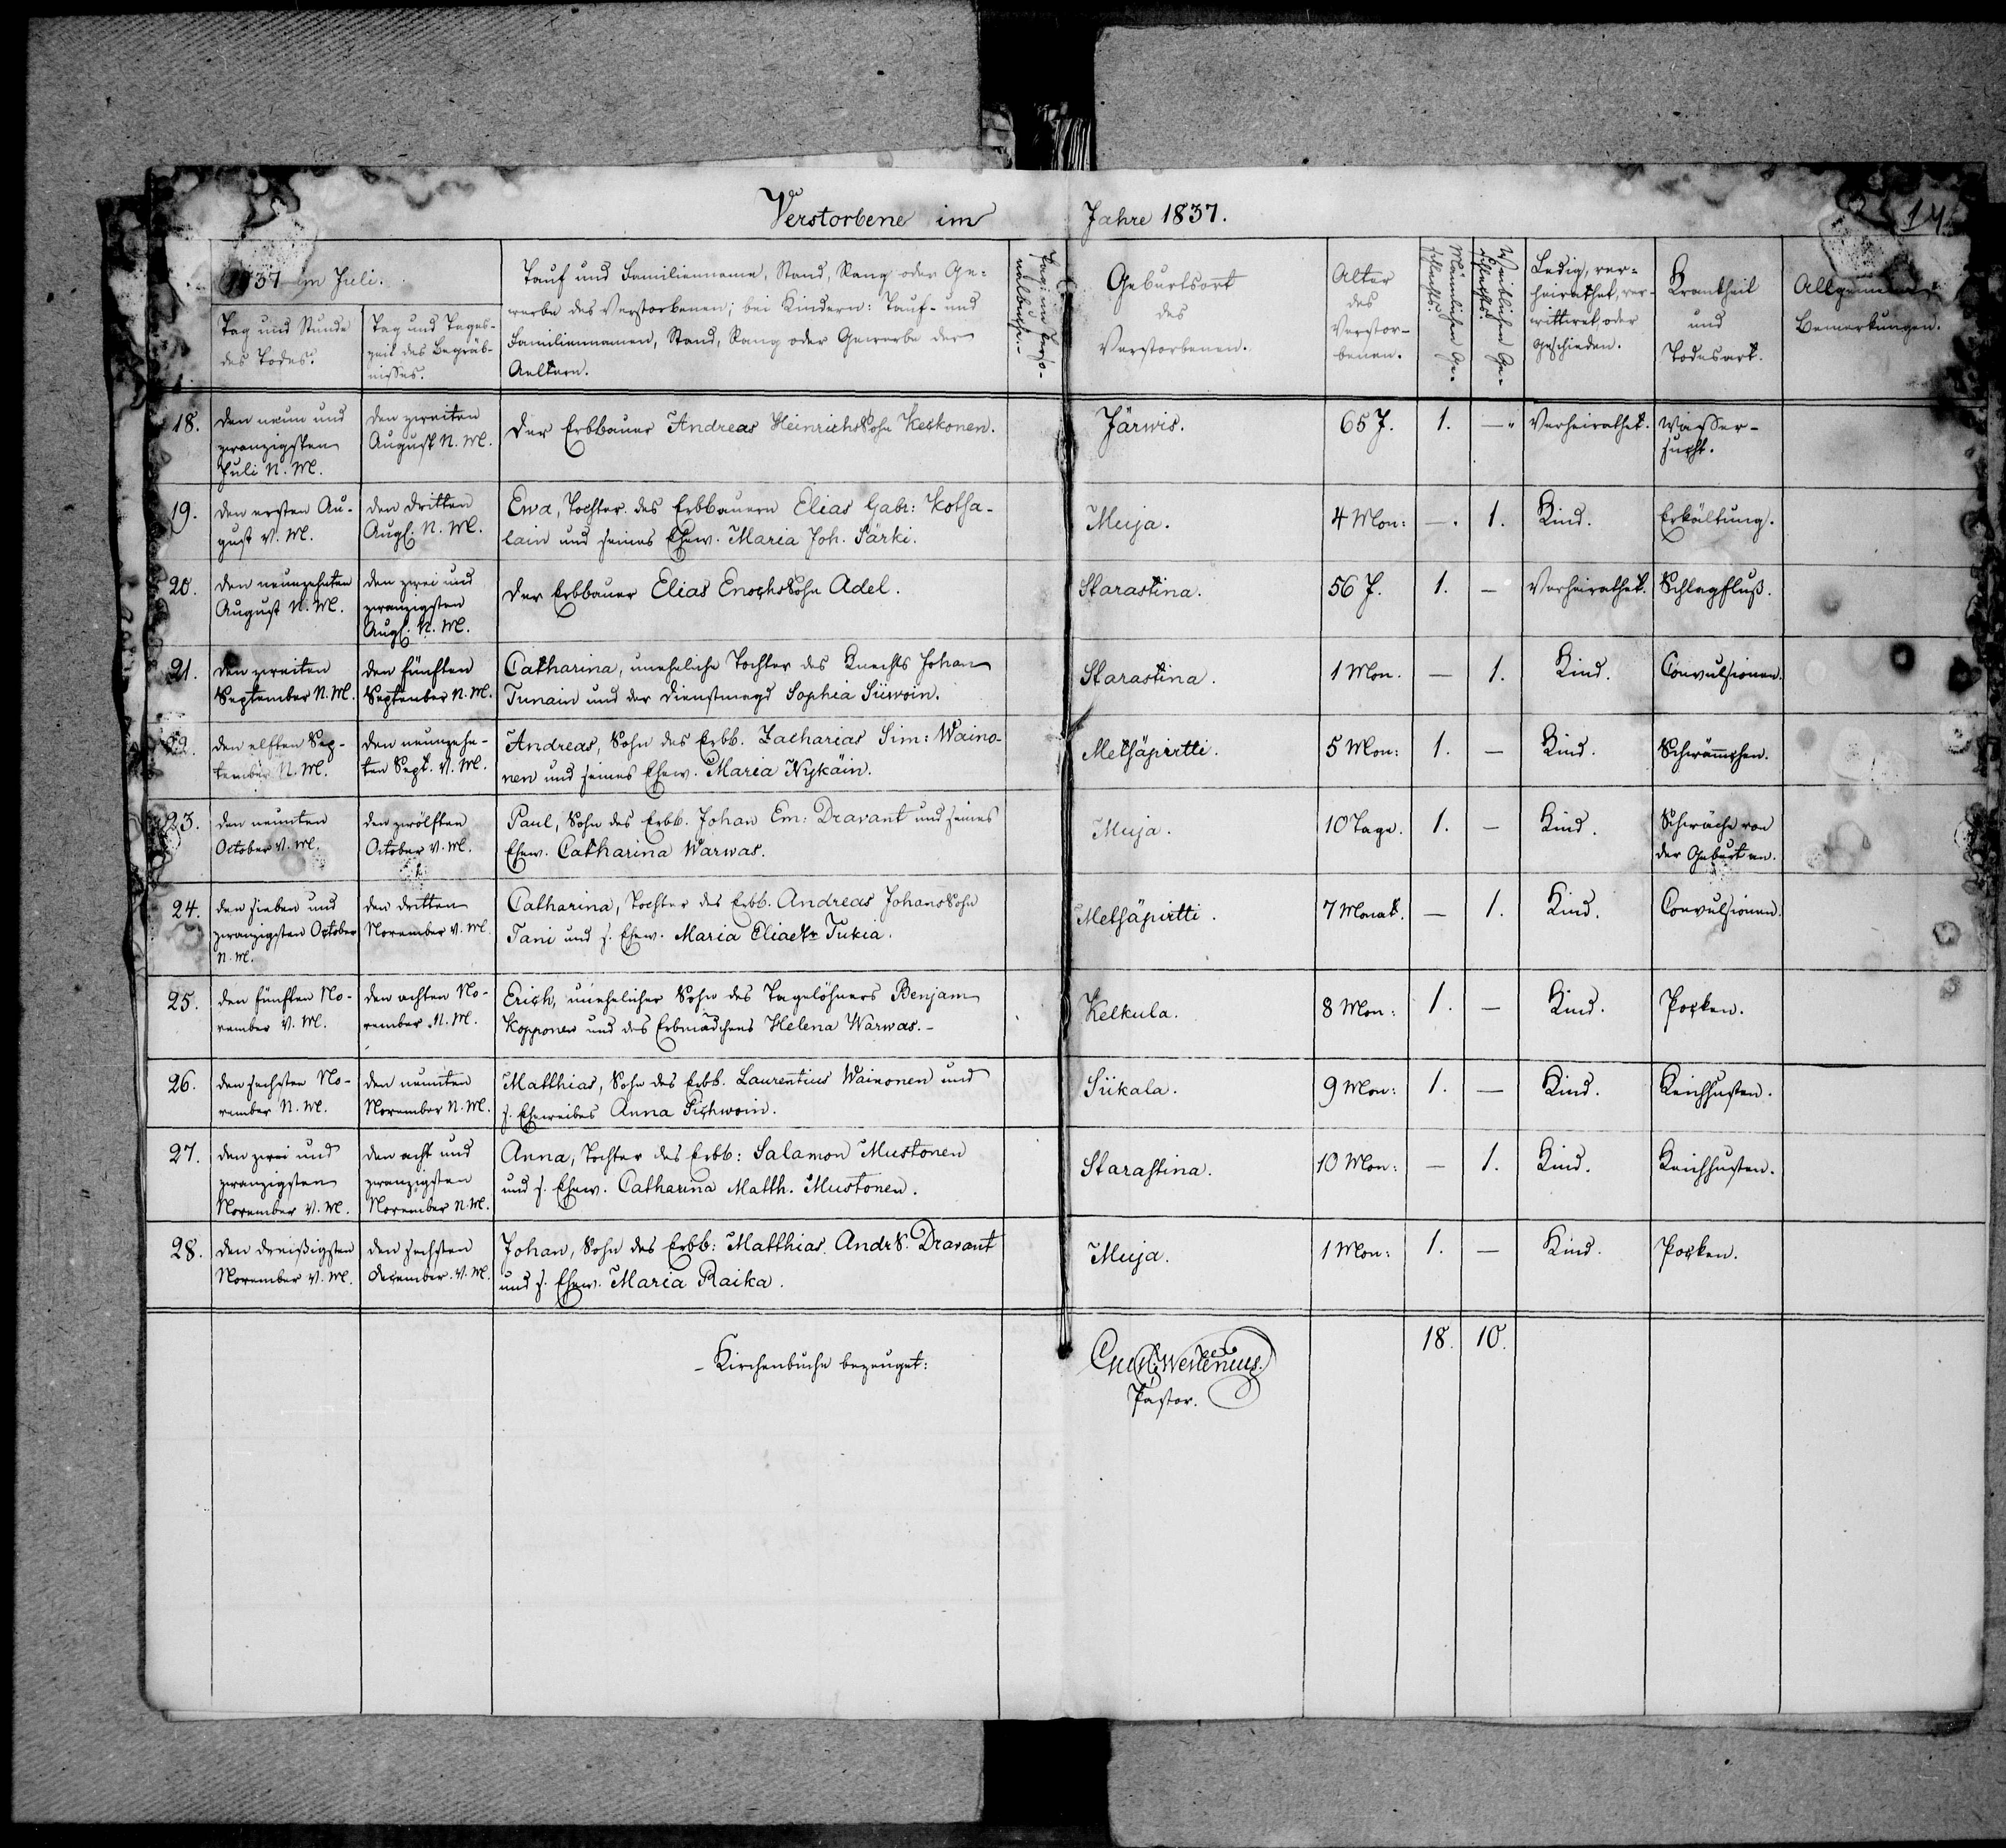 Verstorbene im Jahre 1837.
14.
1837 im Juli.
Tag und Stunde
des Todes.
Tag und Tages-
zeit des Begräb-
nisses.
Tauf und Familienname, Stand, Rang oder Ge-
werbe des Verstorbenen; bei Kindern: Tauf- und
Familiennamen, Stand, Rang oder Gewerbe der
Aeltern.
Pag: im Perso-
nalbuche.-
Geburtsort
des
Verstorbenen.
Alter
des
Verstor-
benen.
Männlichen Ge-
schlechts.
Weiblichen Ge-
schlechts.
Ledig, ver-
heirathet, ver-
wittwet, oder
geschieden.
Krankheit
und
Todesart.
Allgemeine
Bemerkungen.
18.
den neun und
zwanzigsten
Juli N. M.
den zweiten
August N. M.
Der Erbbauer Andreas HeinrichsSohn Keskonen.
Järwis.
65 J.
1.
—
Verheirathet.
Wasser-
sucht.
19.
den ersten Au-
gust V. M.
den dritten
Augs. N. M.
Ewa, Tochter des Erbbauern Elias Gabr: Kotsa-
lain und seines Ehew. Maria Joh. Särki.
Muja.
4 Mon:
—.
1.
Kind.
Erkältung.
20.
den neunzehnten
August N. M.
den zwei und
zwanzigsten
Augs. N. M.
Der Erbbauer Elias EnochsSohn Adel.
Starastina.
56 J.
1.
—
Verheirathet.
Schlagfluß.
21.
den zweiten
September N. M.
den fünften
September N. M.
Catharina, uneheliche Tochter des Knechts Johan
Tunain und der Dienstmagd Sophia Siiwoin.
Starastina.
1 Mon.
—
1.
Kind.
Convulsionen.
22.
den elften Sep-
tember N. M.
den neunzehn-
ten Sept. V. M.
Andreas, Sohn des Erbb. Zacharias Sim: Waino-
nen und seines Ehew. Maria Nykäin.
Metsäpirtti.
5 Mon:
1.
—
Kind.
Schwämchen.
23.
den neunten
October V. M.
den zwölften
October V. M.
Paul, Sohn des Erbb. Johan Em: Dravant und seines
Ehew. Catharina Warwas.
Muja.
10 Tage.
1.
—
Kind.
Schwäche von
der Geburt an.
24.
den sieben und
zwanzigsten October
N. M.
den dritten
November V. M.
Catharina, Tochter des Erbb. Andreas JohansSohn
Tani und s. Ehew. Maria Eliaetr Tukia.
Metsäpirtti.
7 Monat.
—
1.
Kind.
Convulsionen.
25.
den fünften No-
vember V. M.
den achten No-
vember N. M.
Erich, unehelicher Sohn des Tagelöhners Benjam
Kopponen und des Erbmädchens Helena Warwas.-
Kelkula.
8 Mon:
1.
—
Kind.
Pocken.
26.
den sechsten No-
vember N. M.
den neunten
November N. M.
Matthias, Sohn des Erbb. Laurentius Wainonen und
s. Eheweibes Anna Sichwoin.
Siikala.
9 Mon:
1.
—
Kind.
Keichhusten.
27.
den zwei und
zwanzigsten
November V. M.
den acht und
zwanzigsten
November N. M.
Anna, Tochter des Erbb: Salamon Mustonen
und s. Ehew. Catharina Matth. Mustonen.
Starastina.
10 Mon:
—
1.
Kind.
Keichhusten.
28.
den dreißigsten
November V. M.
den sechsten
December. V. M.
Johan, Sohn des Erbb: Matthias Andr S. Dravant
und s. Ehew. Maria Raika.
Muja.
1 Mon:
1.
—
Kind.
Pocken.
18.
10.
- Kirchenbuche bezeuget:
Pastor.